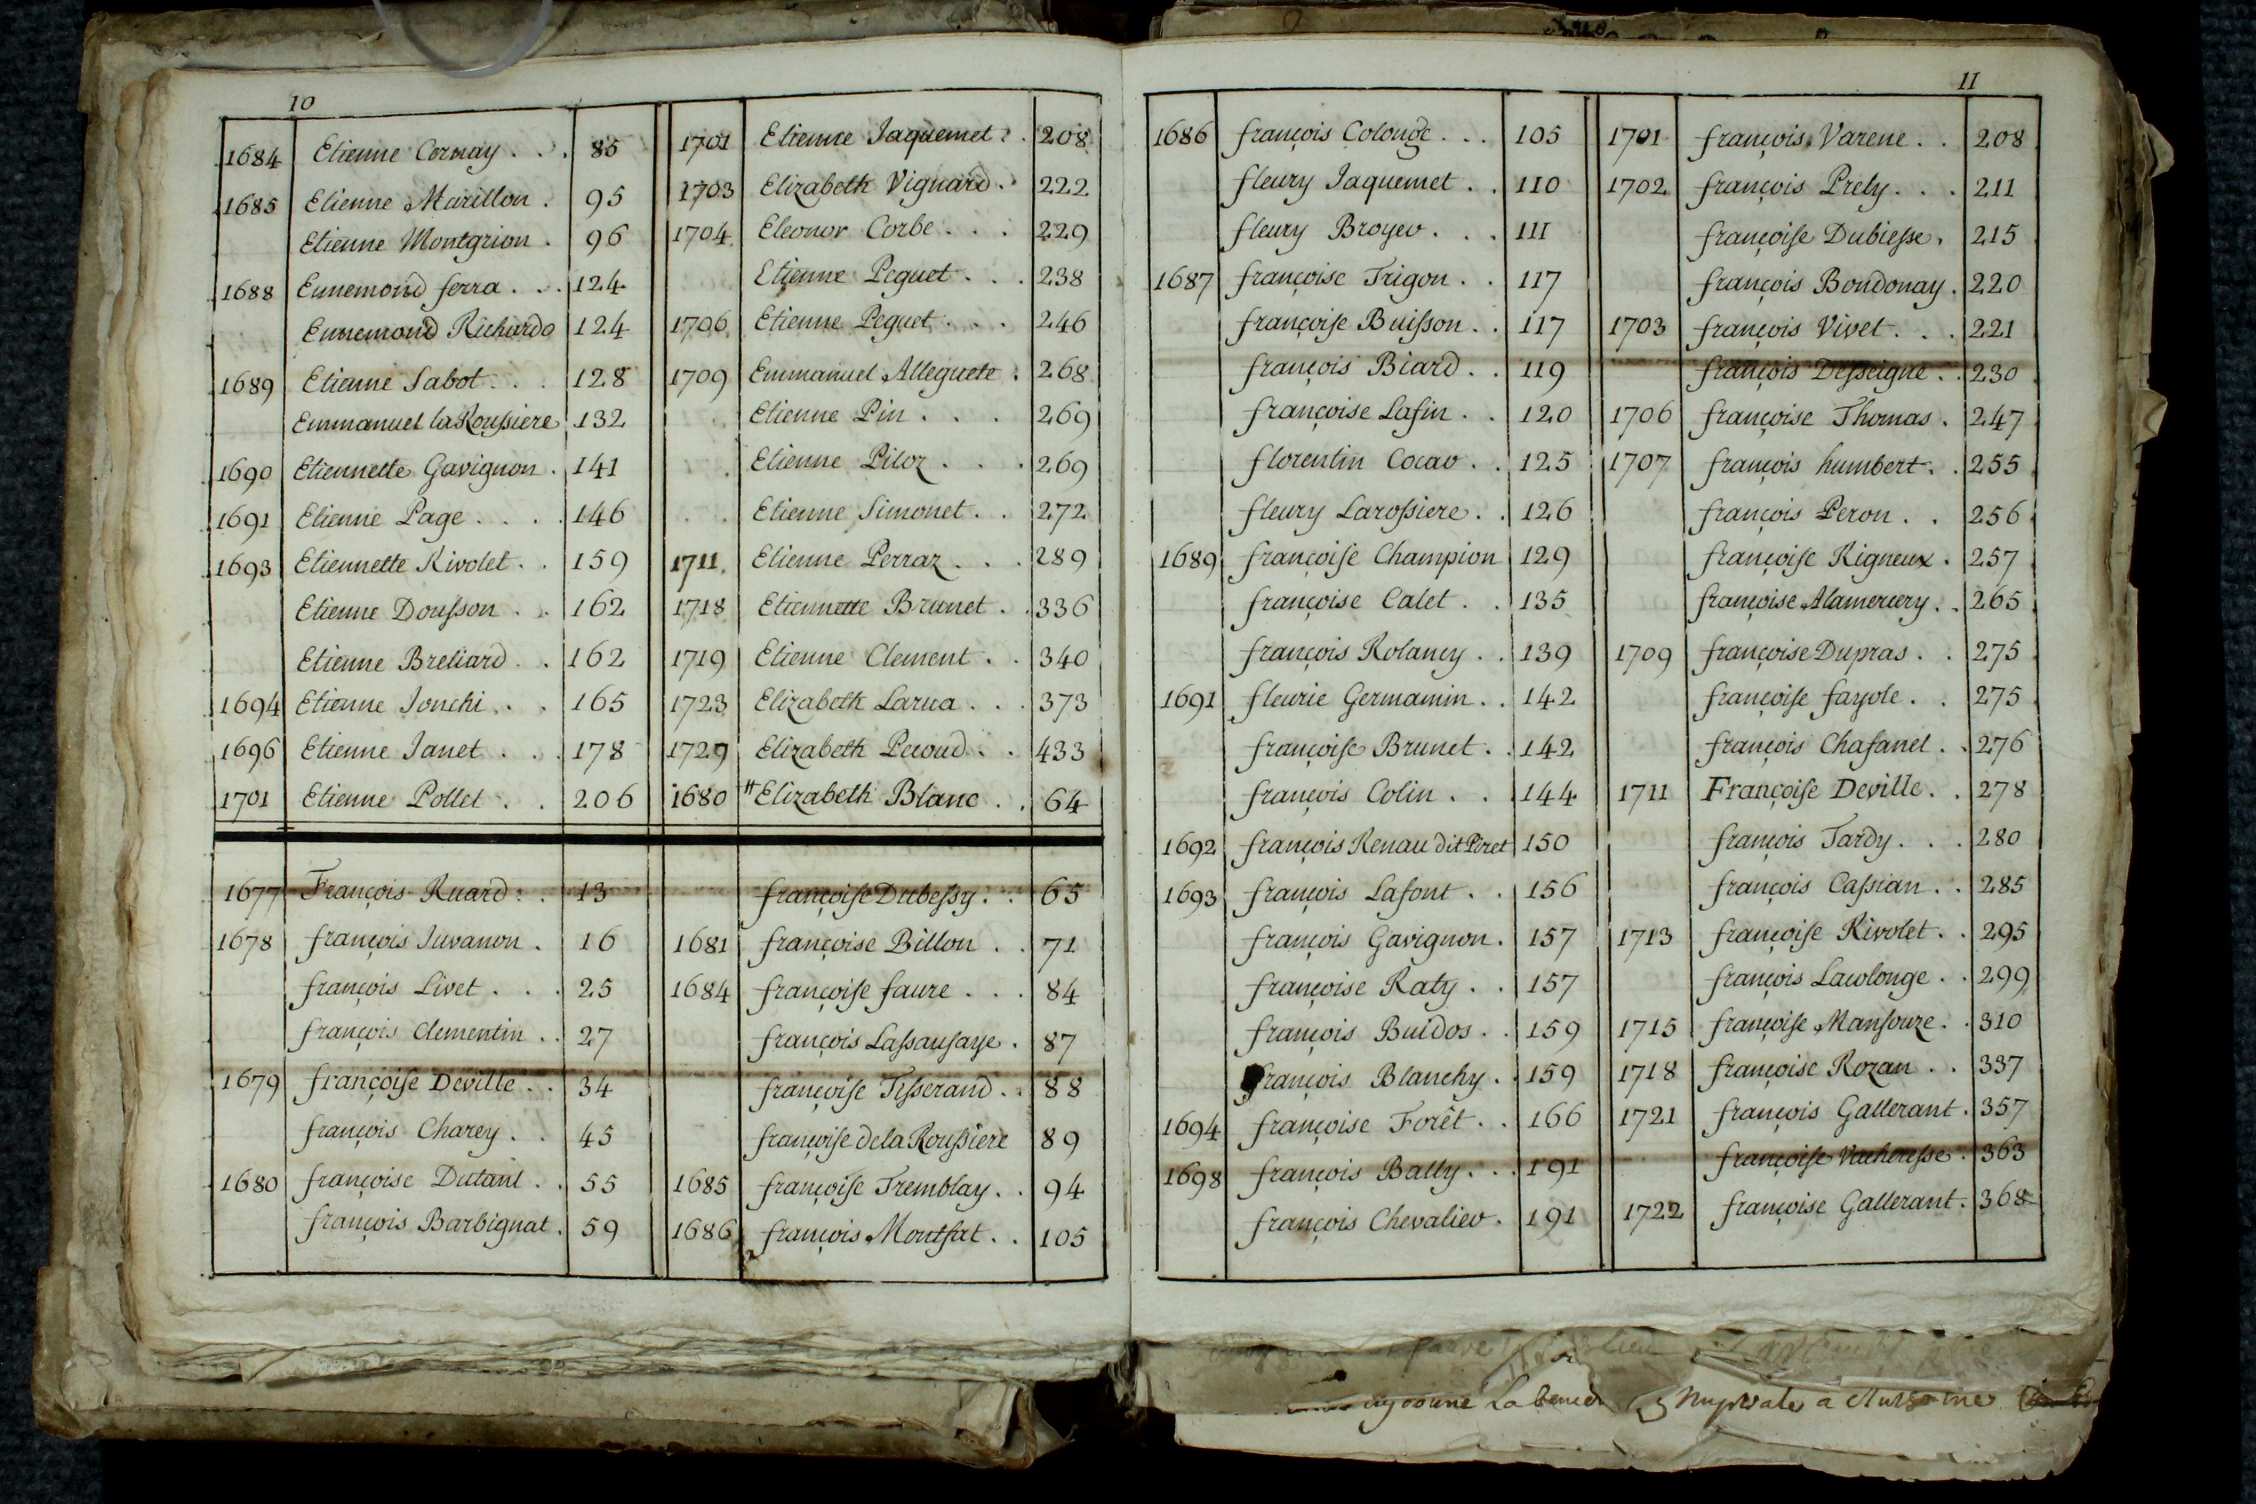 10
1684 Etienne Cornay . . . 85
1685 Etienne Marillon . 95
Etienne Montgrion . 96
1688 Ennemond ferra . . . 124
Ennemond Richardo 124
1689 Etienne Sabot . . . 128
Emmanuel laRoussiere 132
1690 Etiennette Gavignon . 141
1691 Etienne Page . . . . 146
1693 Etiennette Rivolet . . 159
Etienne Dousson . . 162
Etienne Breliard . . 162
1694 Etienne Jonchi . . . 165
1696 Etienne Janet . . . 178
1701 Etienne Pollet . . 206
1701 Etienne Jaquemet . . 208
1703 Elizabeth Vignard . 222
1704 Eleonor Corbe . . . 229
Etienne Peguet . . . 238
1706 Etienne Peguet . . . 246
1709 Emmanuel Alleguete . 268
Etienne Pin . . . 269
Etienne Piloz . . . . 269
Etienne Simonet . . 272
1711 Etienne Perraz . . . 289
1718 Etiennette Brunet . . 336
1719 Etienne Clement . . 340
1723 Elizabeth Larua . . . 373
1729 Elizabeth Pecoud . . 433
1680 # Elizabeth Blanc . . 64
1677 François Ruard . . 13
1678 françois Juvanon . 16
françois Livet . . . 25
françois Clementin . . 27
1679 françoise Deville . . 34
françois Charey . . 45
1680 françoise Dutant . . 55
françois Barbignat . 59
françoise Dubessy . . 65
1681 françoise Billon . . 71
1684 françoise faure . . . 84
françois Lassausaye . 87
françoise Tisserand . . 88
françoise dela Roussiere 89
1685 françoise Tremblay . . 94
1686 françois Montfat . . 105
11
1686 françois Colonge . . . 105
fleury Jaquemet . . 110
fleury Broyer . . . 111
1687 françoise Trigon . . 117
françoise Buisson . . 117
françois Biard . . 119
françoise Lafin . . 120
florentin Cocar . . 125
fleury Larossiere . . 126
1689 françoise Champion 129
françoise Calet . . 135
françois Rolancy . . 139
1691 fleurie Germanin . . 142
françoise Brunet . . 142
françois Colin . . . 144
1692 françois Renau dit Péret 150
1693 françois Lafont . . 156
françois Gavignon . 157
françoise Raty . . 157
françois Buidos . . 159
françois Blanchy . . 159
1694 françoise Forêt . . 166
1698 françois Bally . . . 191
françois Chevalier . 191
1701 françois Varene . . 208
1702 françois Prely . . . 211
françoise Dubiesse . 215
françois Bondonay . 220
1703 françois Vivet . . . 221
françois Desseigne . . 230
1706 françoise Thomas . 247
1707 françois humbert . . 255
françois Peron . . 256
françoise Rigneux . 257
françoise Alamercery . . 265
1709 françoise Dupras . . 275
françoise fayole . . 275
françois Chasanel . . 276
1711 Françoise Deville . . 278
françois Tardy . . . 280
françois Cassian . . 285
1713 françoise Rivolet . . 295
françois Lacolonge . . 299
1715 françoise Mansouze . . 310
1718 françoise Rozan . . 337
1721 françois Gallerant . 357
françoise Vacheresse . 363
1722 françoise Gallerant . 368